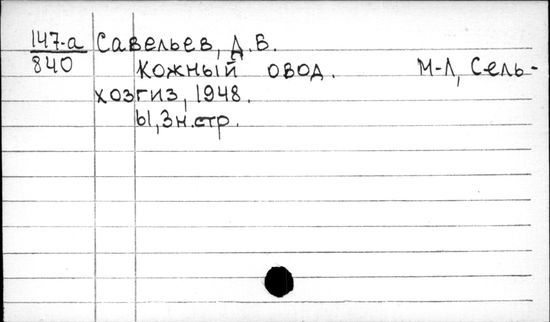 147-а Савельев, Д.В.
840 Кожный овод. М-Л, Сель-
хозгиз, 1948.
61, 3 н.стр.